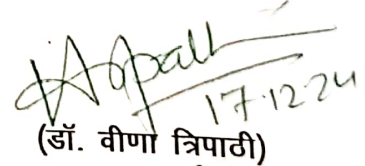 17.12.24
(डॉ. वीणा त्रिपाठी)